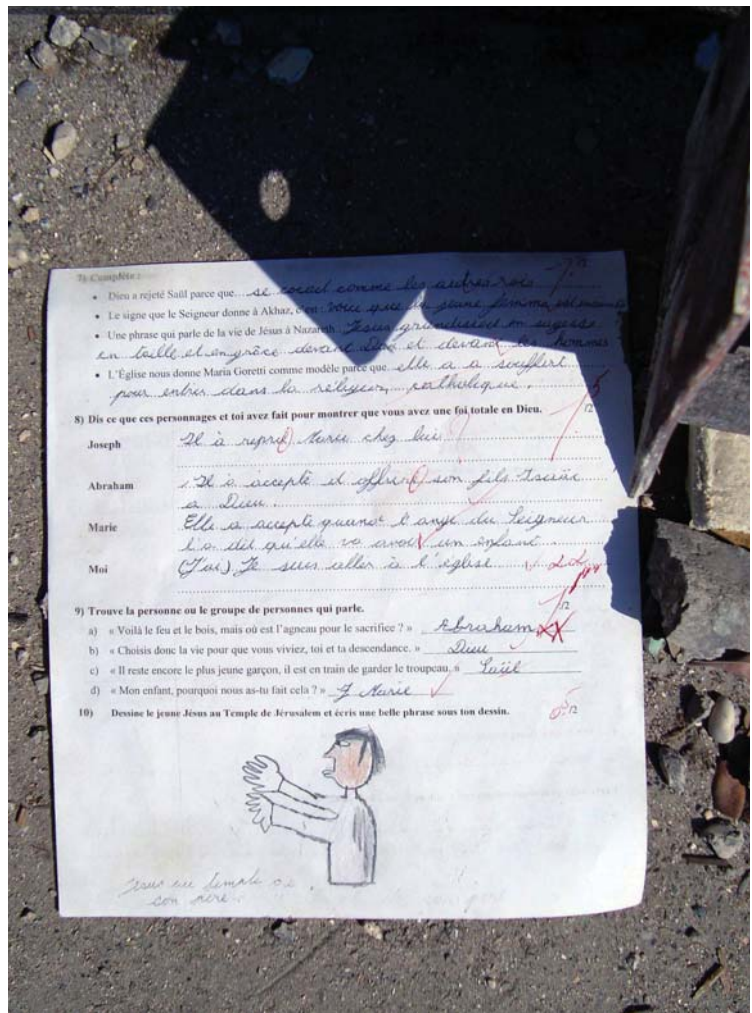 7) Complète :
• Dieu a rejeté Saül parce que se comme les autres rois
• Le signe que le Seigneur donne à Akhaz, c'est que la jeune femme est enceinte
• Une phrase qui parle de la vie de Jésus à Nazareth Jésus en sagesse
en taille et en grâce devant Dieu et devant les hommes
• L'Église nous donne Maria Goretti comme modèle parce que elle a a souffert
pour entrer dans la catholique.
8) Dis ce que ces personnages et toi avez fait pour montrer que vous avez une foi totale en Dieu. /2
Joseph Il à repris Marie chez lui
Abraham Il à accepté d'offrire son fils
a Dieu.
Marie Elle a accepté quand l'ange du Seigneur
l'a dit qu'elle va avoir un enfant
Moi (J'ai) Je suis aller à l'église
/2
9) Trouve la personne ou le groupe de personnes qui parle.
a) « Voilà le feu et le bois, mais où est l'agneau pour le sacrifice ? » Abraham
b) « Choisis donc la vie pour que vous viviez, toi et ta descendance. » Dieu
c) « Il reste encore le plus jeune garçon, il est en train de garder le troupeau. »
d) « Mon enfant, pourquoi nous as-tu fait cela ? » Marie
10) Dessine le jeune Jésus au Temple de Jérusalem et écris une belle phrase sous ton dessin. /2
Jesus au